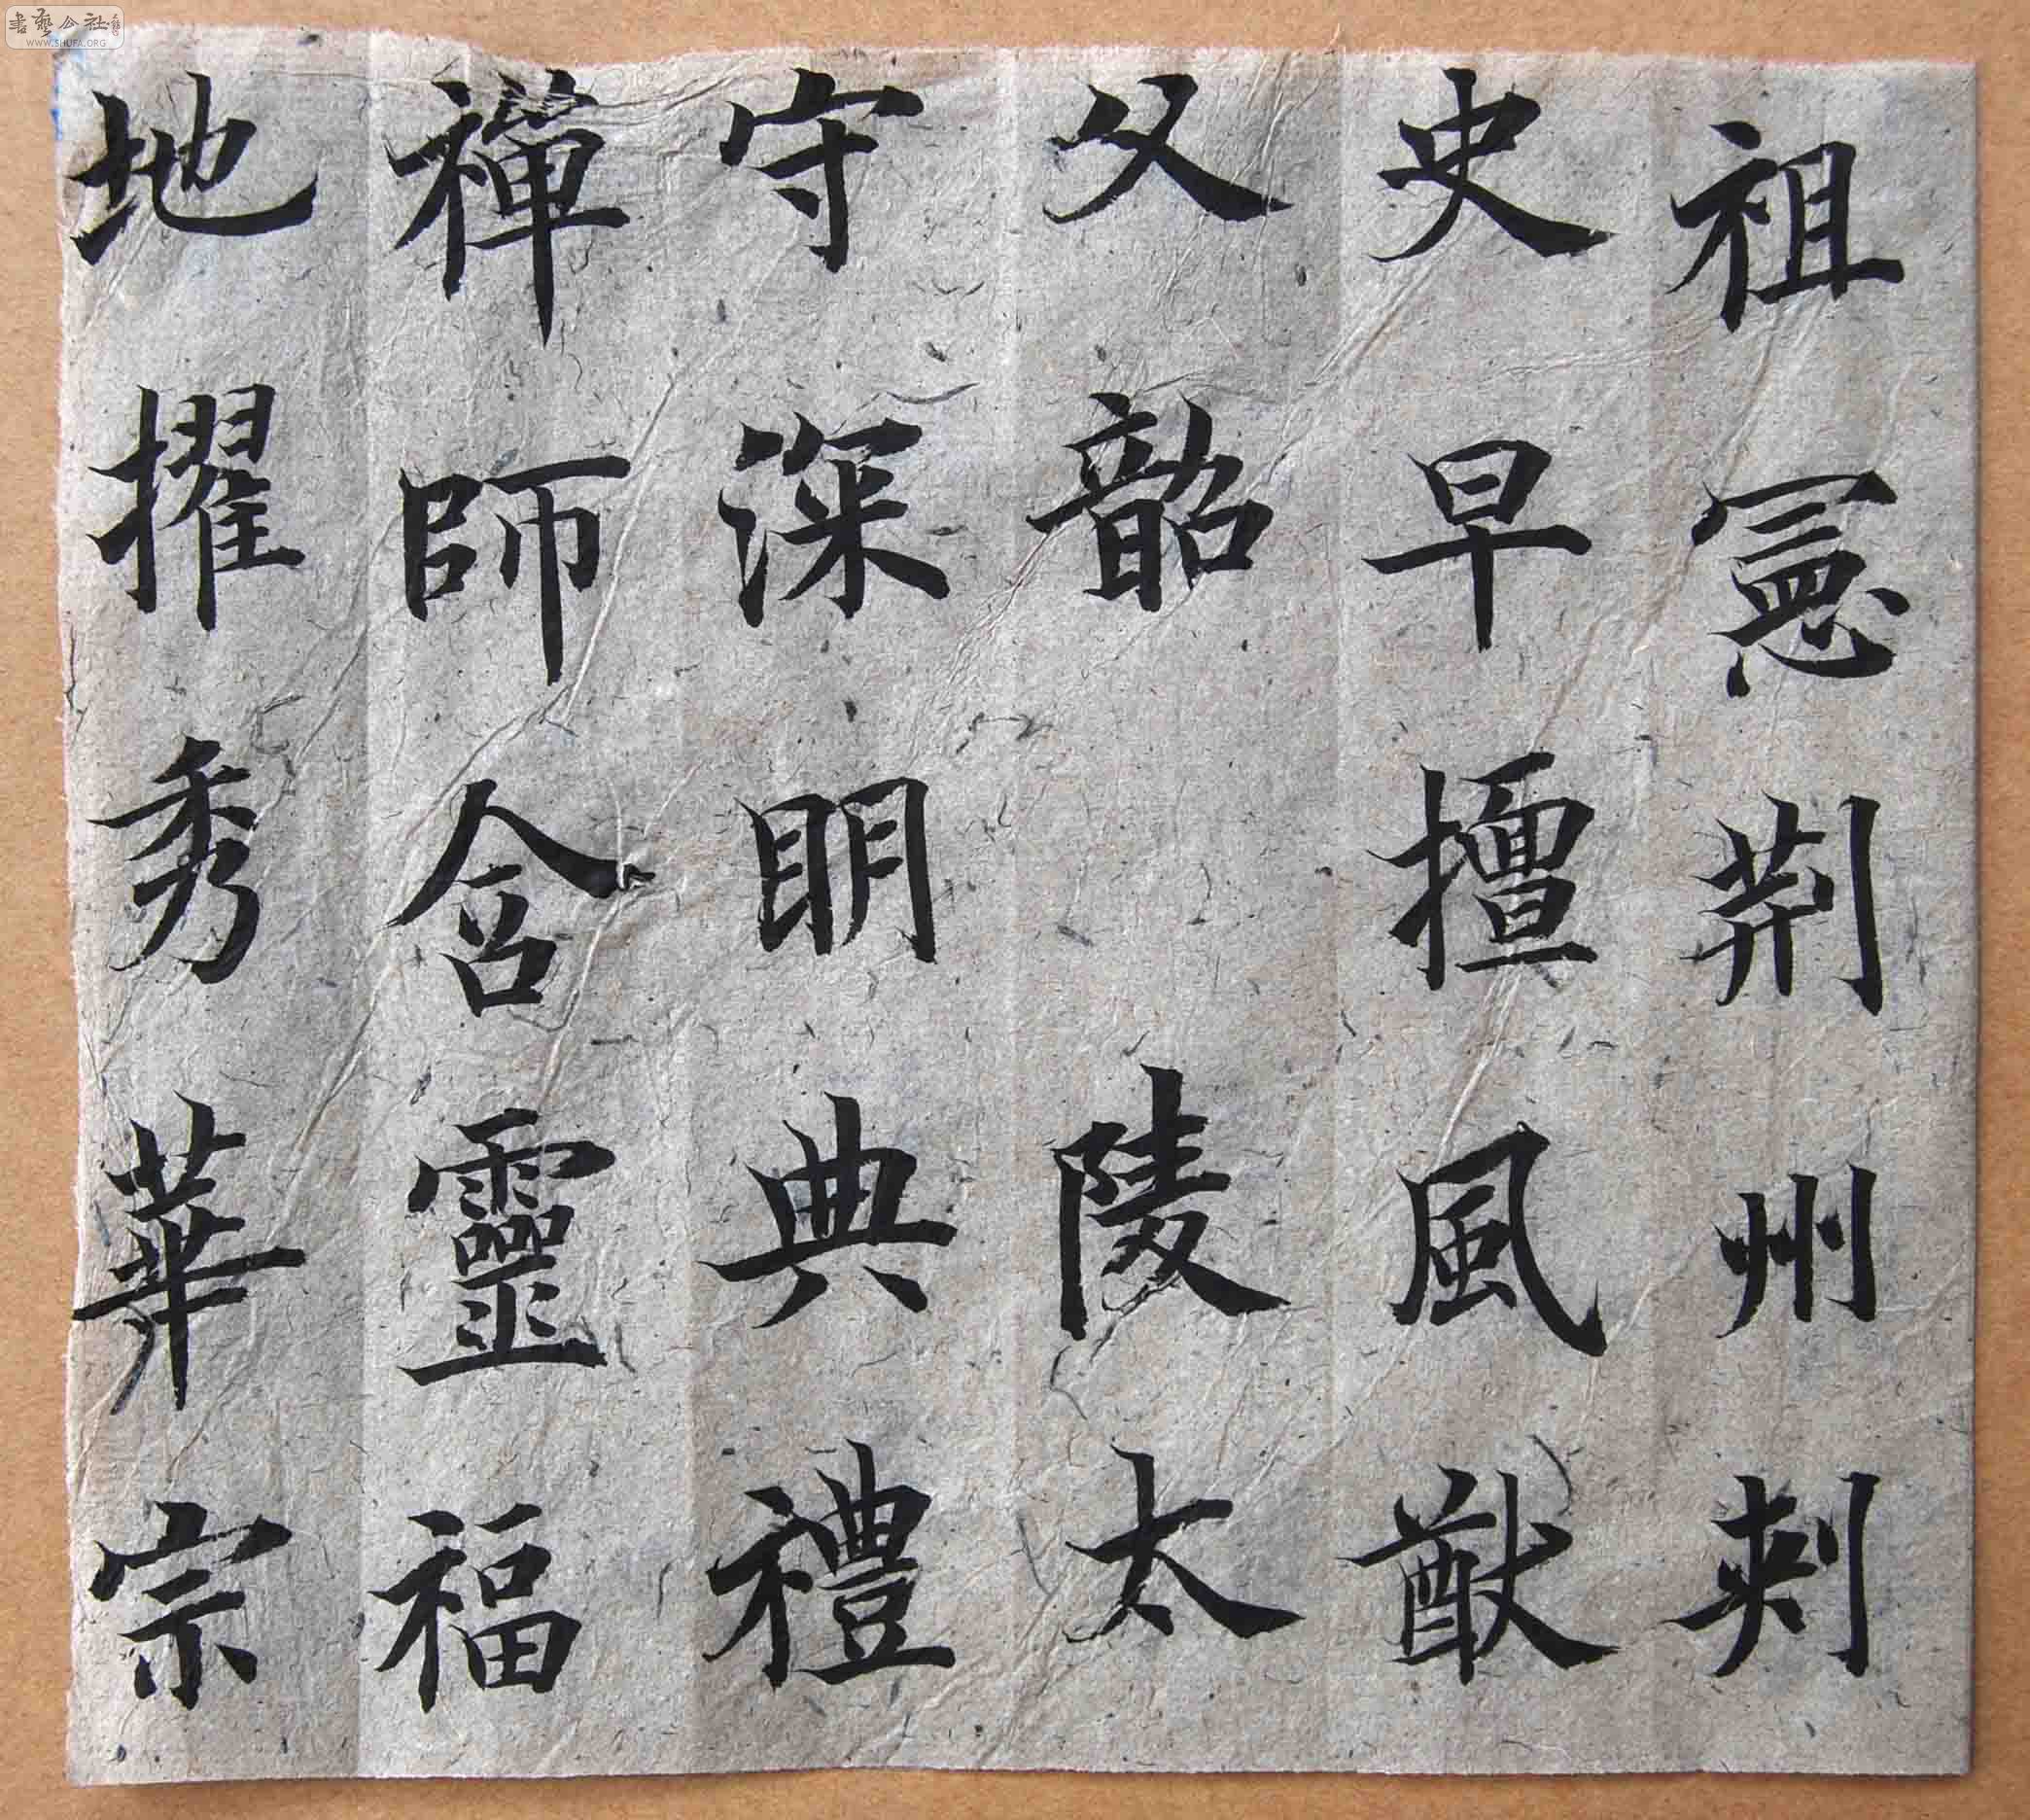 祖憲荊州刺
史早擅風猷
父韶 陵太
守深明典禮
禪師含靈福
地擢秀華宗
書藝公社
WWW.SHUFA.ORG